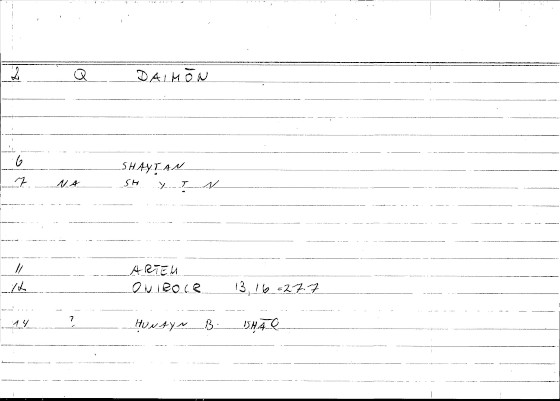 2 Q DAIMŌN
6 SHAYṬAN
7 NA SH Y Ṭ N
11 ARTEM
12 ONIROCR 13,16 = 27.7
14 ? ḤUNAYN B. ISḤĀQ